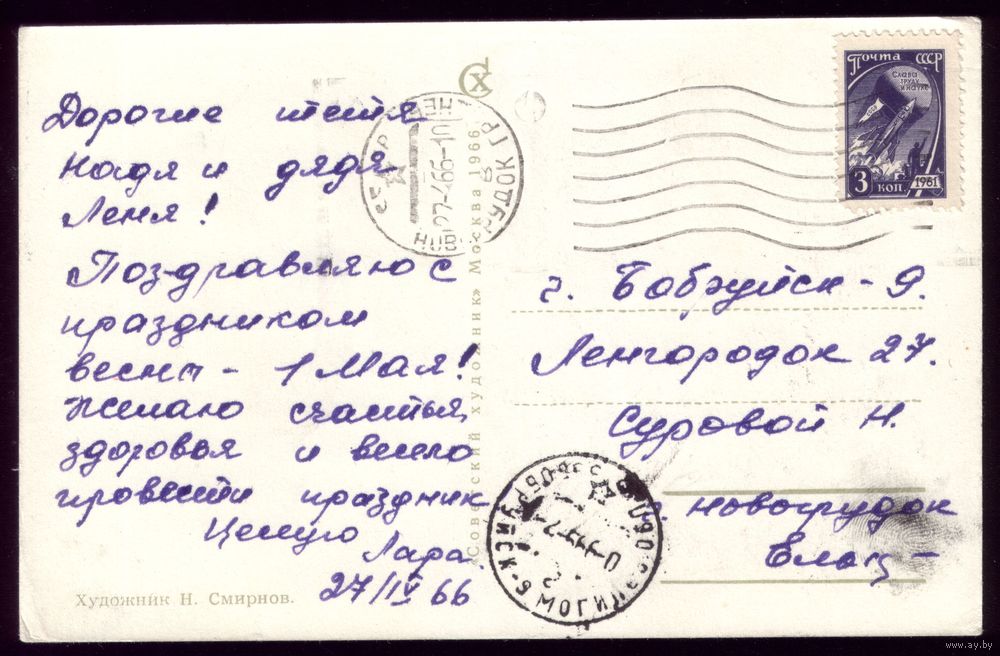 Дорогие тетя
Надя и дядя
Леня!
Поздравляю с
праздником
весны - 1 Мая!
Желаю счастья,
здоровья и весело
провести праздник
Целую
Лара.
27/IV 66
Художник Н. Смирнов.
«Советский художник» Москва 1966
Почта СССР
Слава
труду
и науке
3 коп
1961
27-466-10
г. Бобруйск-9.
Ленгородок 27.
Суровой Н.
новогрудок
www.ay.by